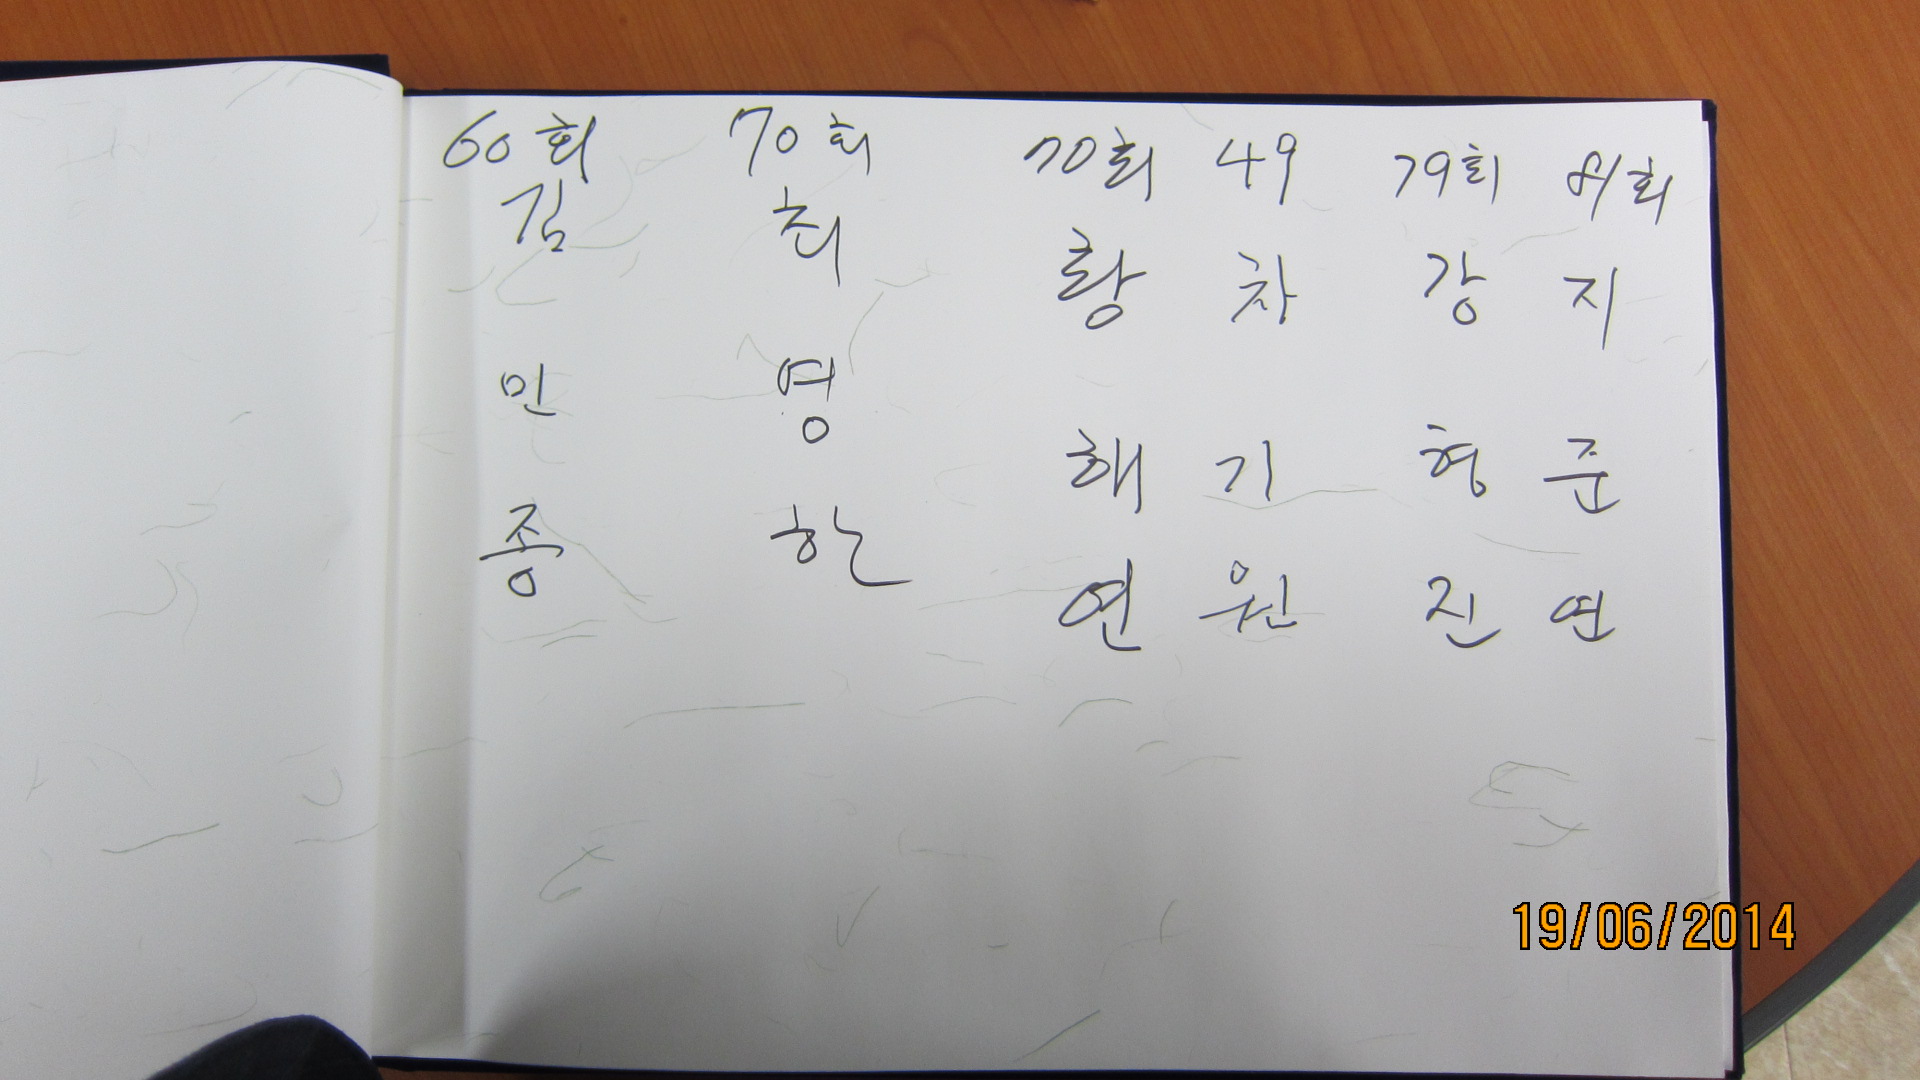 60회
김민종
70회
최영한
70회
황해연
49
차기원
79회
강형진
81회
지준연
19/06/2014